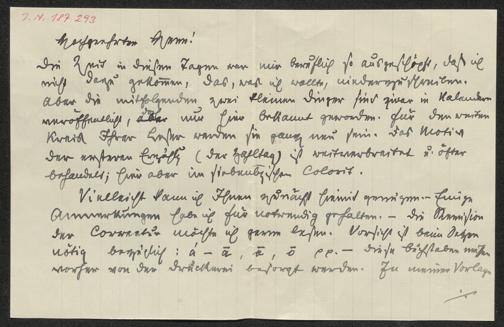 I.N. 187.293
Hochgeehrter Herr!
Die Zeit in diesen Tagen war mir beruflich so ausgeschöpft, daß ich
nicht dazu gekommen, das, was ich wollte, niederzuschreiben.
Aber die mitfolgenden zwei kleinen Dinger sind zwar in Kalendern
veröffentlicht, aber nur hier bekannt geworden. Für den weiten
Kreis Ihrer Leser werden sie ganz neu sein. Das Motiv
der ersteren Erzählg (der Zahltag) ist weitverbreitet u. öfter
behandelt; hier aber im siebenbgischen Colorit.
Vielleicht kann ich Ihnen zunächst hiemit genügen. – Einige
Anmerkungen habe ich für notwendig gehalten. – Die Revision
der Correctur möchte ich gerne lesen. Vorsicht ist beim Setzen
nötig bezüglich: a – ā, ē, ō pp. – diese Buchstaben müßen
vorher von der Druckerei besorgt werden. In meiner Vorlage